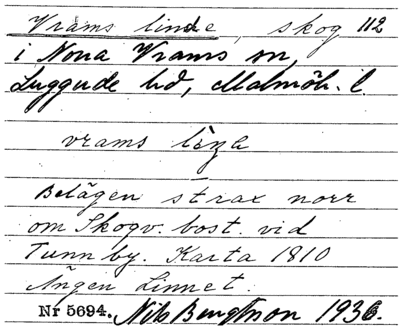 Vrams linde, skog 112
i Nona Vrams sn,
Luggude hd, Malmöh. l.
vrams
Belägen strax norr
om Skogv. bost. vid
Tunnby. Karta 1810
Ängen Linnet.
Nr 5694. Nils Bengtson 1936.